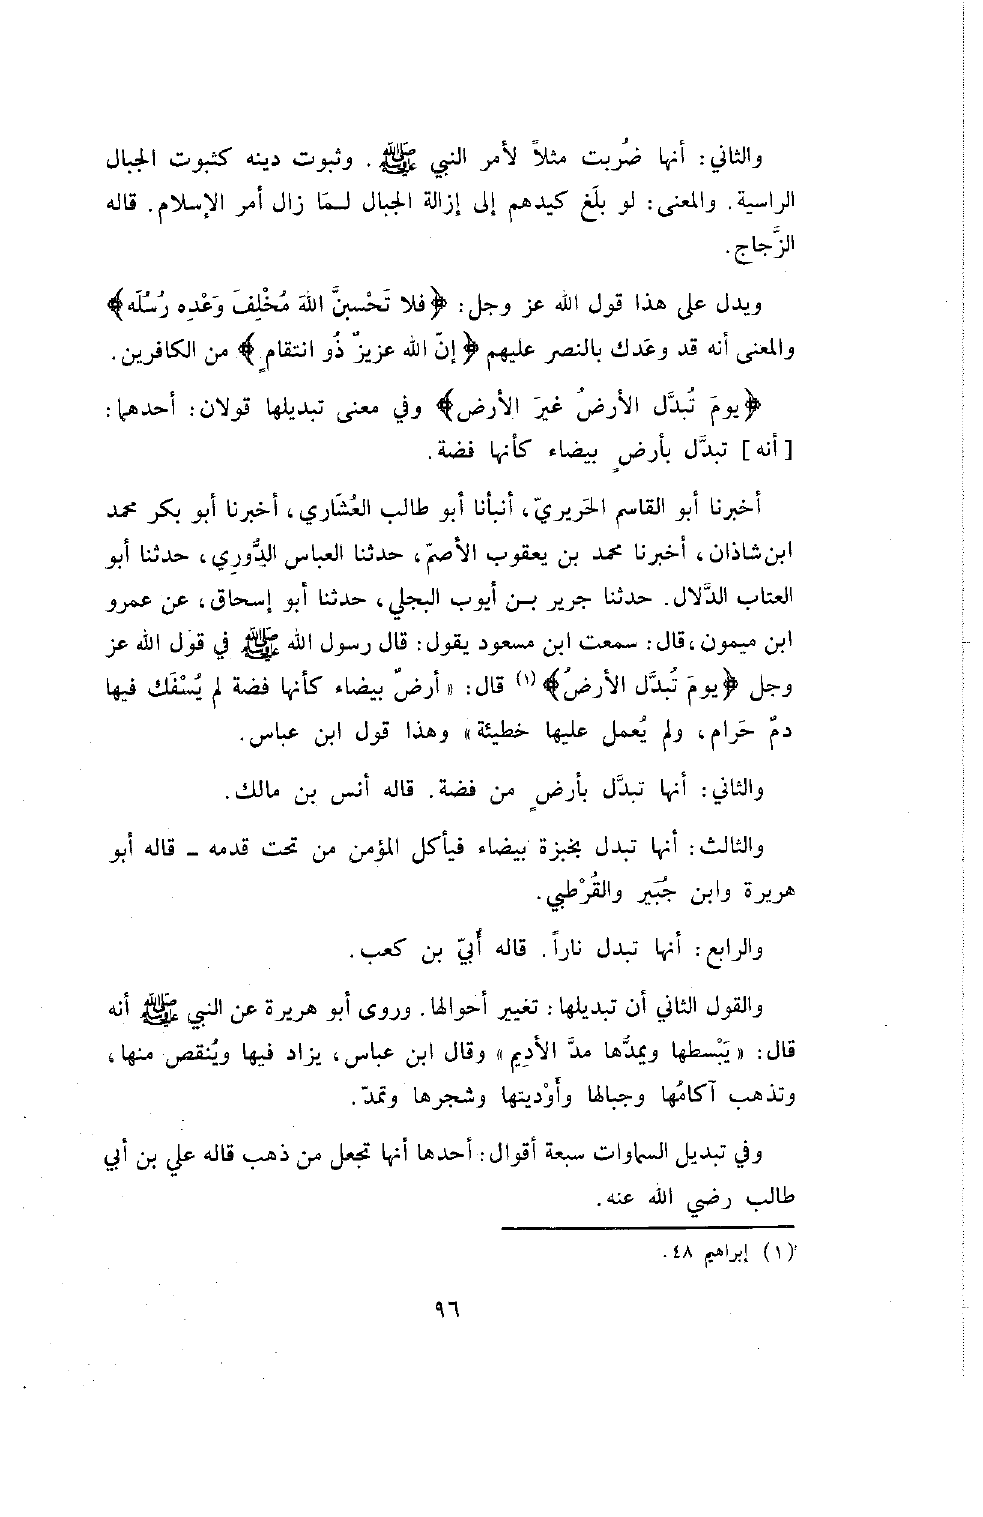 والثاني: أنها ضُربت مثلاً لأمر النبي ﷺ. وثبوت دينه كثبوت الجبال
الراسية. والمعنى: لو بلَغ كيدهم إلى إزالة الجبال لـمَا زال أمر الإسلام. قاله
الزَّجاج.
ويدل على هذا قول الله عز وجل: ﴿فلا تَحْسبنَّ اللهَ مُخْلِفَ وَعْدِه رُسُلَه﴾
والمعنى أنه قد وعَدك بالنصر عليهم ﴿إنّ الله عزيزٌ ذُو انتقامٍ﴾ من الكافرين.
﴿يومَ تُبدَّل الأرضُ غيرَ الأرض﴾ وفي معنى تبديلها قولان: أحدهما:
[أنه] تبدَّل بأرضٍ بيضاء كأنها فضة.
أخبرنا أبو القاسم الحَريريّ، أنبأنا أبو طالب العُشَاري، أخبرنا أبو بكر محمد
ابن شاذان، أخبرنا محمد بن يعقوب الأصمّ، حدثنا العباس الدُّوري، حدثنا أبو
العتاب الدَّلال. حدثنا جرير بـن أيوب البجلي، حدثنا أبو إسحاق، عن عمرو
ابن ميمون، قال: سمعت ابن مسعود يقول: قال رسول الله ﷺ في قول الله عز
وجل ﴿يومَ تُبدَّل الأرضُ﴾ (١) قال: «أرضٌ بيضاء كأنها فضة لم يُسْفَك فيها
دمٌ حَرام، ولم يُعمل عليها خطيئة» وهذا قول ابن عباس.
والثاني: أنها تبدَّل بأرضٍ من فضة. قاله أنس بن مالك.
والثالث: أنها تبدل بخبزة بيضاء فيأكل المؤمن من تحت قدمه ـ قاله أبو
هريرة وابن جُبَير والقُرْطبي.
والرابع: أنها تبدل ناراً. قاله أُبيّ بن كعب.
والقول الثاني أن تبديلها: تغيير أحوالها. وروى أبو هريرة عن النبي ﷺ أنه
قال: «يَبْسطها ويمدُّها مدَّ الأديم» وقال ابن عباس، يزاد فيها ويُنقص منها،
وتذهب آكامُها وجبالها وأَوْديتها وشجرها وتمدّ.
وفي تبديل السماوات سبعة أقوال: أحدها أنها تجعل من ذهب قاله علي بن أبي
طالب رضي الله عنه.
(١) إبراهيم ٤٨.
٩٦